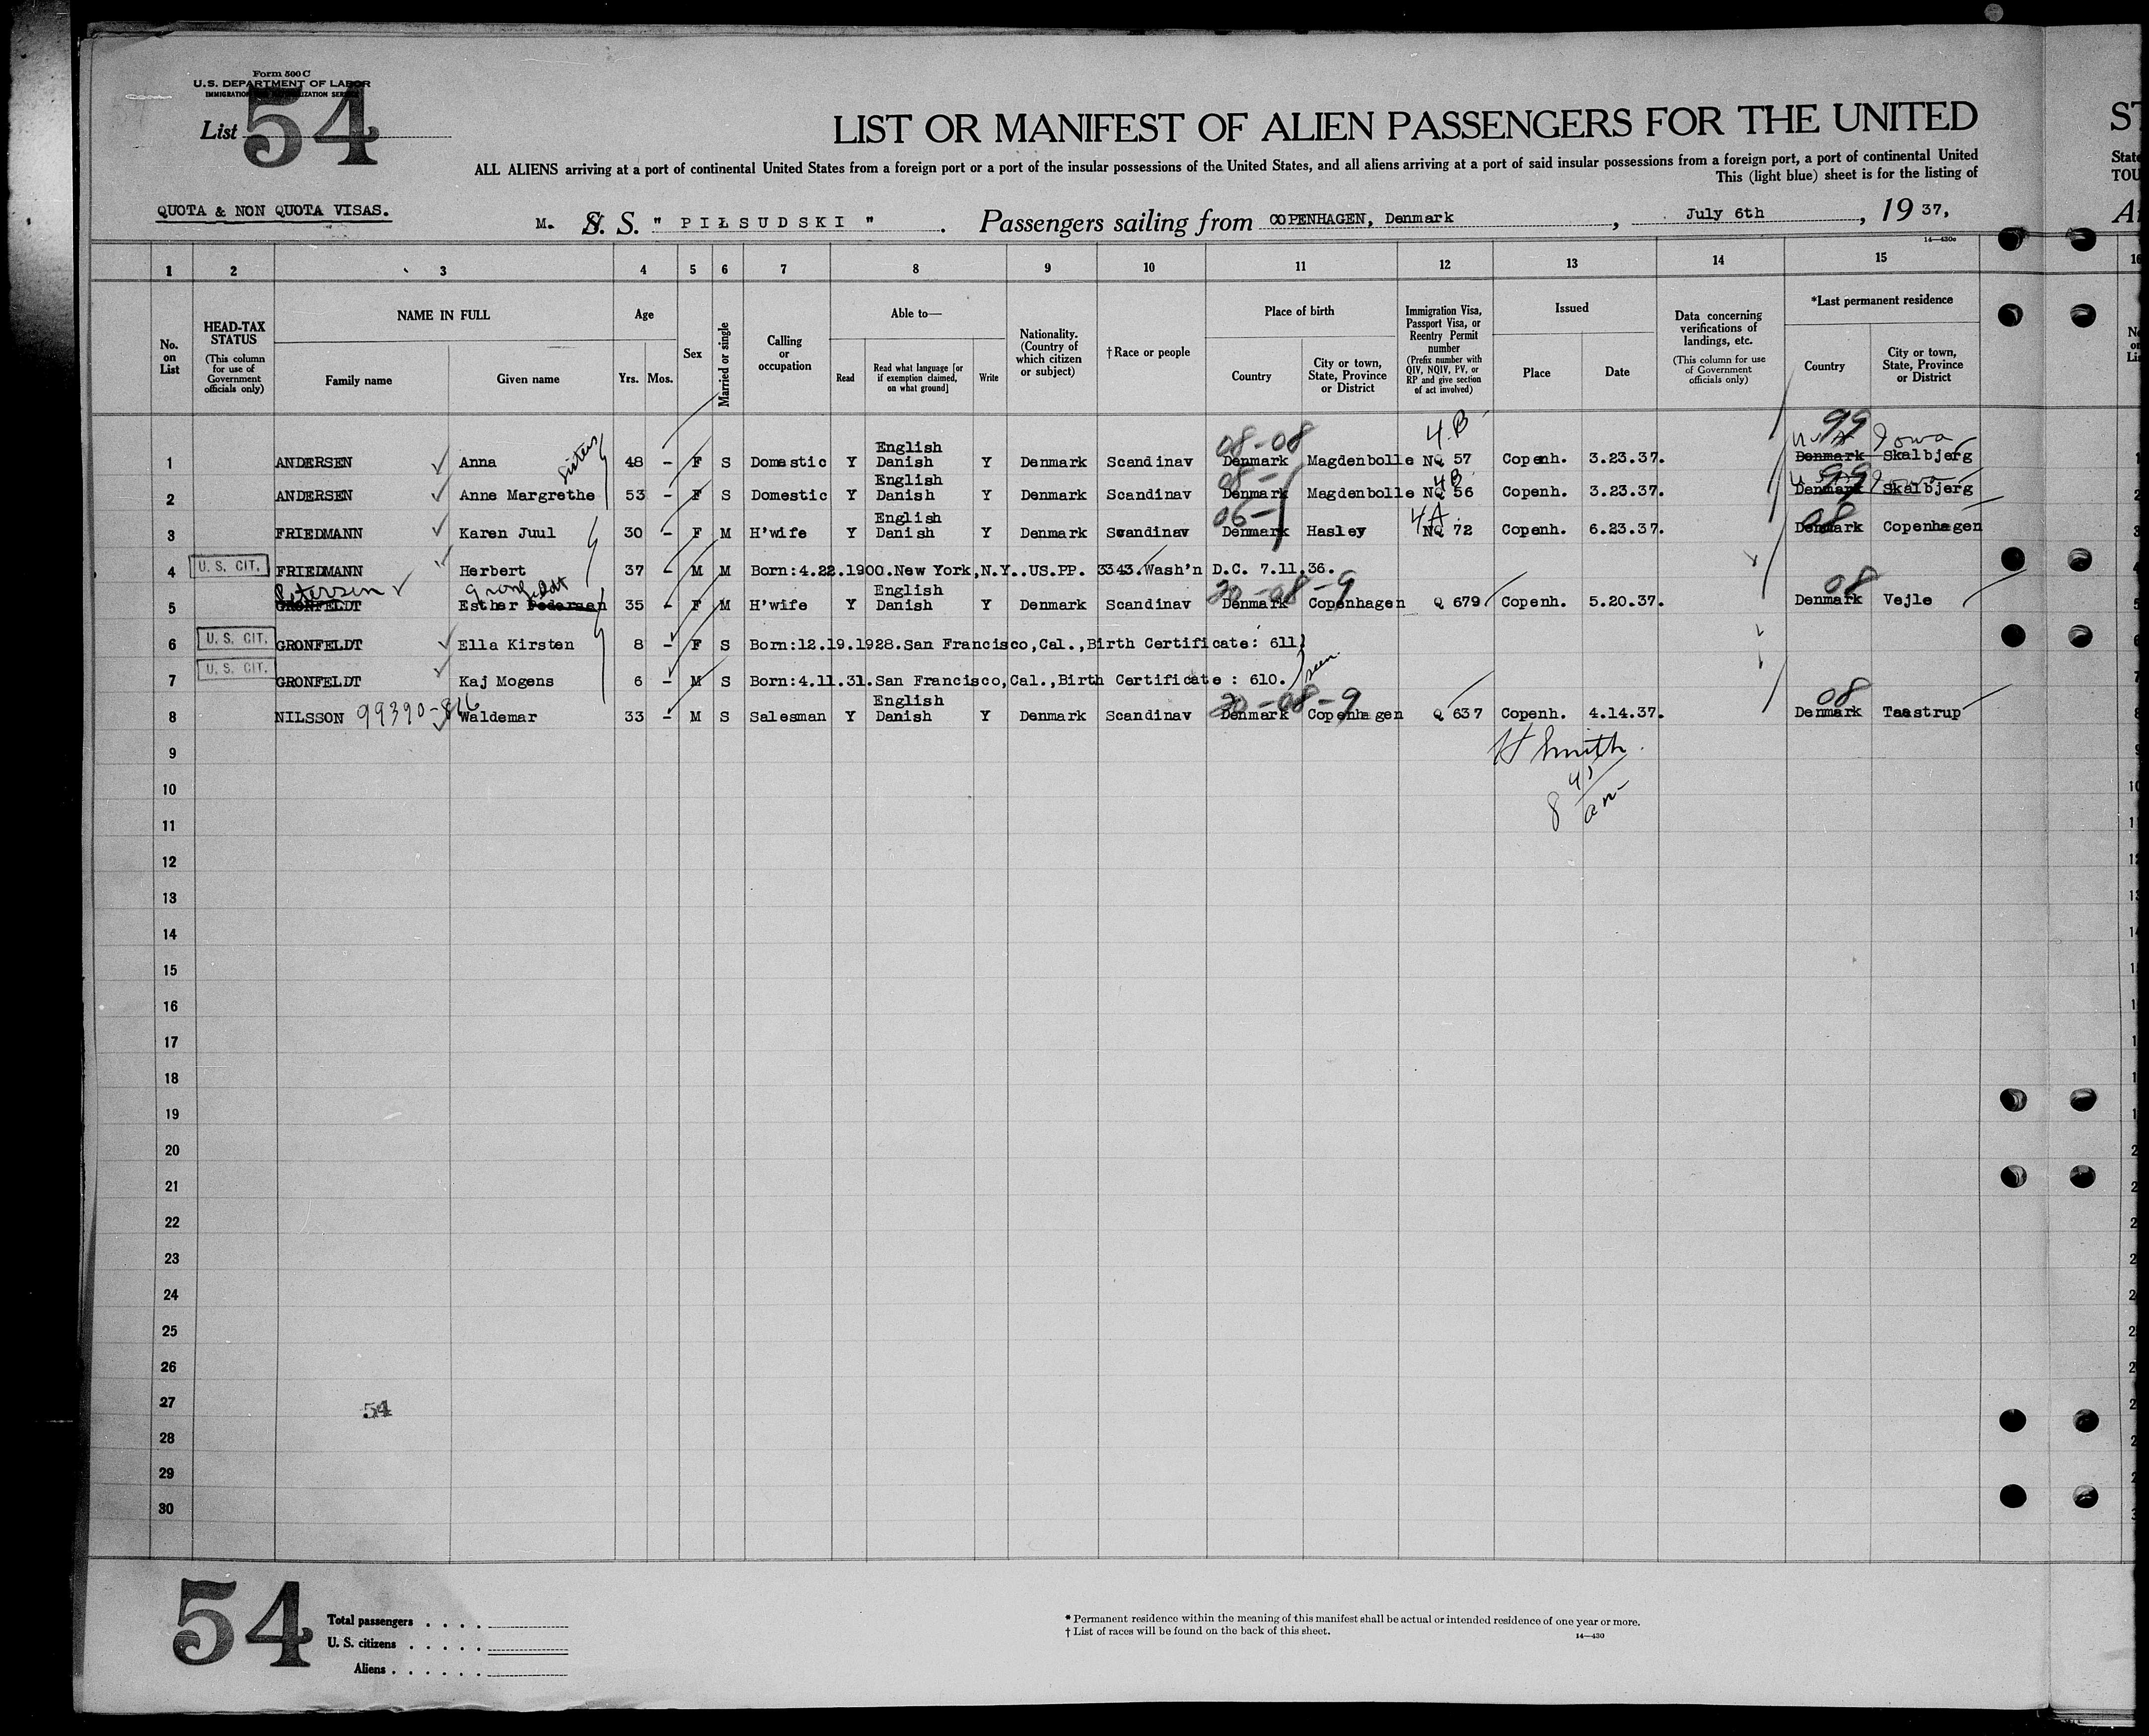 Form 500 C
U. S. DEPARTMENT OF LABOR
List 54
LIST OR MANIFEST OF ALIEN PASSENGERS FOR THE UNITED ST
ALL ALIENS arriving at a port of continental United States from a foreign port or a port of the insular possessions of the United States, and all aliens arriving at a port of said insular possessions from a foreign port, a port of continental United State
This (light blue) sheet is for the listing of TOU
QUOTA & NON QUOTA VISAS.
M. S. S. " PIŁSUDSKI " . Passengers sailing from COPENHAGEN, Denmark , July 6th , 19 37,
14—430c
1 2 3 4 5 6 7 8 9 10 11 12 13 14 15 16
No. on List
HEAD-TAX STATUS (This column for use of Government officials only)
NAME IN FULL Family name Given name
Age Yrs. Mos.
Sex
Married or single
Calling or occupation
Able to— Read Read what language [or if exemption claimed, on what ground] Write
Nationality. (Country of which citizen or subject)
†Race or people
Place of birth Country City or town, State, Province or District
Immigration Visa, Passport Visa, or Reentry Permit number (Prefix number with QIV, NQIV, PV, or RP and give section of act involved)
Issued Place Date
Data concerning verifications of landings, etc. (This column for use of Government officials only)
*Last permanent residence Country City or town, State, Province or District
08-08 4.B 99
sisters English Iowa
1 ANDERSEN Anna 48 - F S Domestic Y Danish Y Denmark Scandinav Denmark Magdenbolle NQ 57 Copenh. 3.23.37. Denmark Skalbjerg
English 08- 4B 99
2 ANDERSEN Anne Margrethe 53 - F S Domestic Y Danish Y Denmark Scandinav Denmark Magdenbolle NQ 56 Copenh. 3.23.37. Denmark Skalbjerg
English 06- 4A 08
3 FRIEDMANN Karen Juul 30 - F M H'wife Y Danish Y Denmark Scandinav Denmark Hasley NQ 72 Copenh. 6.23.37. Denmark Copenhagen
4 U. S. CIT. FRIEDMANN Herbert 37 - M M Born:4.22.1900.New York,N.Y..US.PP. 3343.Wash'n D.C. 7.11.36.
Petersen Gronfeldt English 20-08-9 08
5 GRONFELDT Esther Pedersen 35 - F M H'wife Y Danish Y Denmark Scandinav Denmark Copenhagen Q 679 Copenh. 5.20.37. Denmark Vejle
6 U. S. CIT. GRONFELDT Ella Kirsten 8 - F S Born:12.19.1928.San Francisco,Cal.,Birth Certificate: 611
7 U. S. CIT. GRONFELDT Kaj Mogens 6 - M S Born:4.11.31.San Francisco,Cal.,Birth Certificate : 610. seen
English 20-08-9 08
8 NILSSON 99390-816 Waldemar 33 - M S Salesman Y Danish Y Denmark Scandinav Denmark Copenhagen Q 637 Copenh. 4.14.37. Denmark Taastrup
9 H Smith.
10 8 45 am
11
12
13
14
15
16
17
18
19
20
21
22
23
24
25
26
27 54
28
29
30
54
Total passengers
U. S. citizens
Aliens
* Permanent residence within the meaning of this manifest shall be actual or intended residence of one year or more.
† List of races will be found on the back of this sheet.
14—430